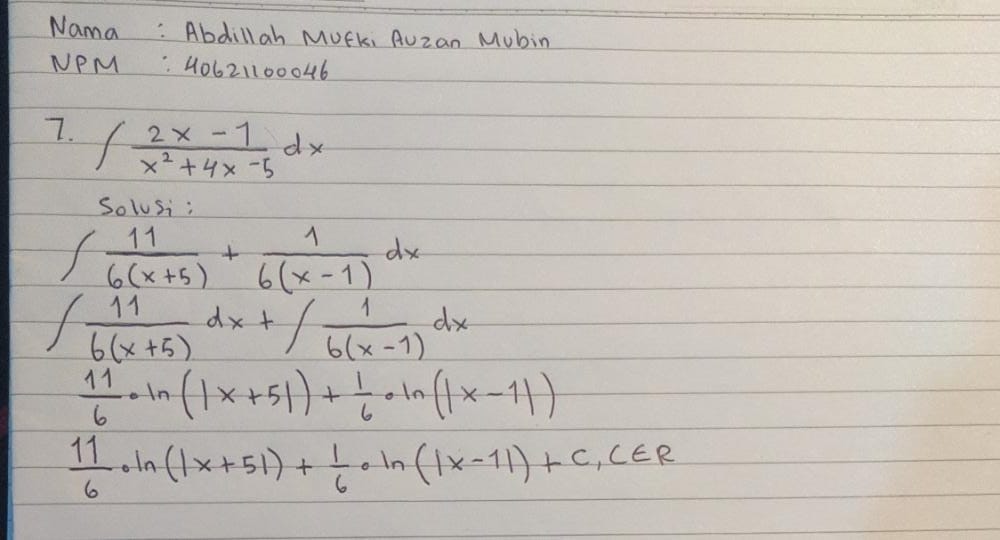 Nama : Abdillah Mufki Auzan Mubin
NPM : 40621100046
7. ∫ (2x - 1)/(x² + 4x - 5) dx
Solusi :
∫ 11/(6(x+5)) + 1/(6(x-1)) dx
∫ 11/(6(x+5)) dx + ∫ 1/(6(x-1)) dx
11/6 • ln(|x+5|) + 1/6 • ln(|x-1|)
11/6 • ln(|x+5|) + 1/6 • ln(|x-1|) + C, C∈R